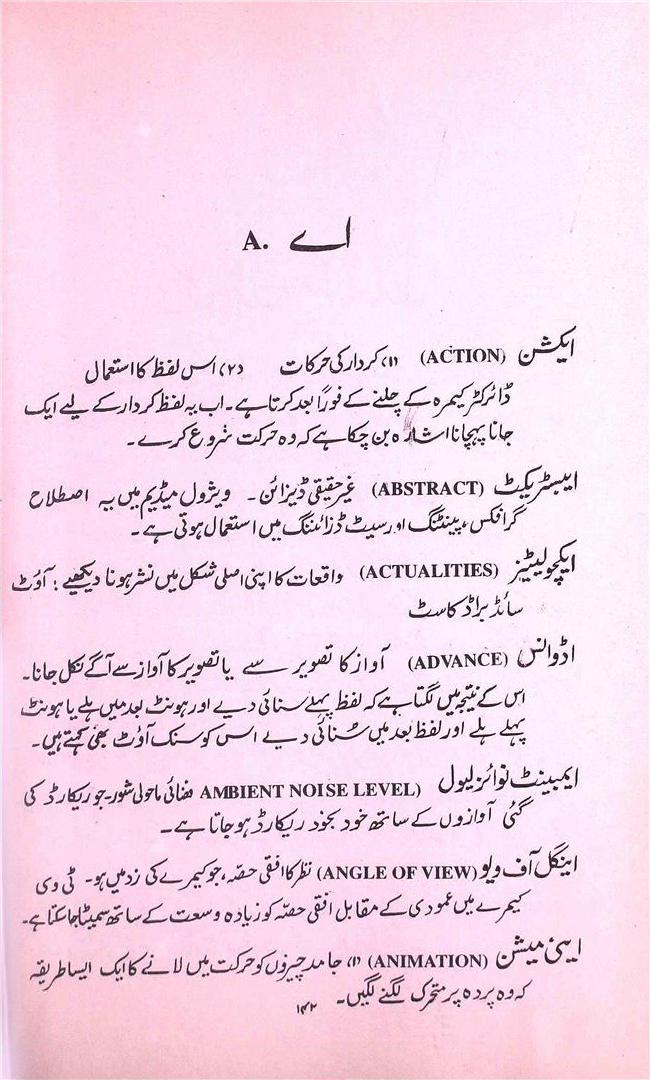 اے A.
ایکشن (ACTION) (۱) کردار کی حرکات (۲) اس لفظ کا استعمال
ڈائرکٹر کیمرہ کے چلنے کے فوراً بعد کرتا ہے۔ اب یہ لفظ کردار کے لیے ایک
جانا پہچانا اشارہ بن چکا ہے کہ وہ حرکت شروع کرے۔
ایبسٹریکٹ (ABSTRACT) غیر حقیقی ڈیزائن۔ ویژول میڈیم میں یہ اصطلاح
گرافکس، پینٹنگ اور سیٹ ڈزائننگ میں استعمال ہوتی ہے۔
ایکچولیٹیز (ACTUALITIES) واقعات کا اپنی اصلی شکل میں نشر ہونا دیکھیے : آؤٹ
سائڈ براڈ کاسٹ
اڈوانس (ADVANCE) آواز کا تصویر سے یا تصویر کا آواز سے آگے نکل جانا۔
اس کے نتیجہ میں لگتا ہے کہ لفظ پہلے سنائی دیے اور ہونٹ بعد میں ہلے یا ہونٹ
پہلے ہلے اور لفظ بعد میں سُنائی دیے اس کو سنک آؤٹ بھی کہتے ہیں۔
ایمبینٹ نوائز لیول (AMBIENT NOISE LEVEL فضائی ماحولی شور۔ جو ریکارڈ کی
گئی آوازوں کے ساتھ خود بخود ریکارڈ ہو جاتا ہے۔
اینگل آف ویو (ANGLE OF VIEW) نظر کا افقی حصّہ، جو کیمرے کی زد میں ہو۔ ٹی وی
کیمرے میں عمودی کے مقابل افقی حصّہ کو زیادہ وسعت کے ساتھ سمیٹا جا سکتا ہے۔
اینی میشن (ANIMATION) (۱) جامد چیزوں کو حرکت میں لانے کا ایک ایسا طریقہ
کہ وہ پردہ پر متحرک لگنے لگیں۔
۱۴۲